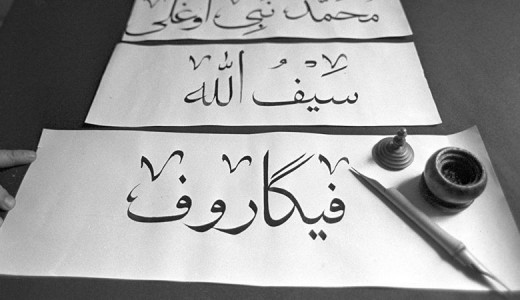 محمّد نبي اوغلى
سيفُ الله
فيگاروف